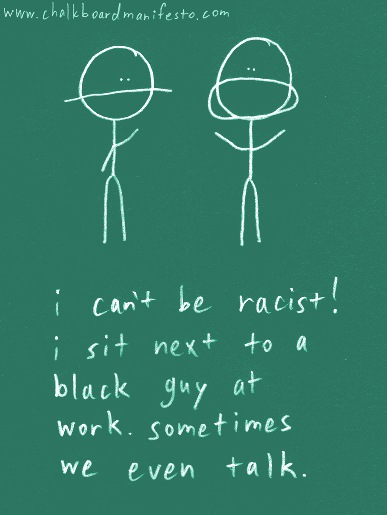 www.chalkboardmanifesto.com
i can't be racist!
i sit next to a
black guy at
work. sometimes
we even talk.